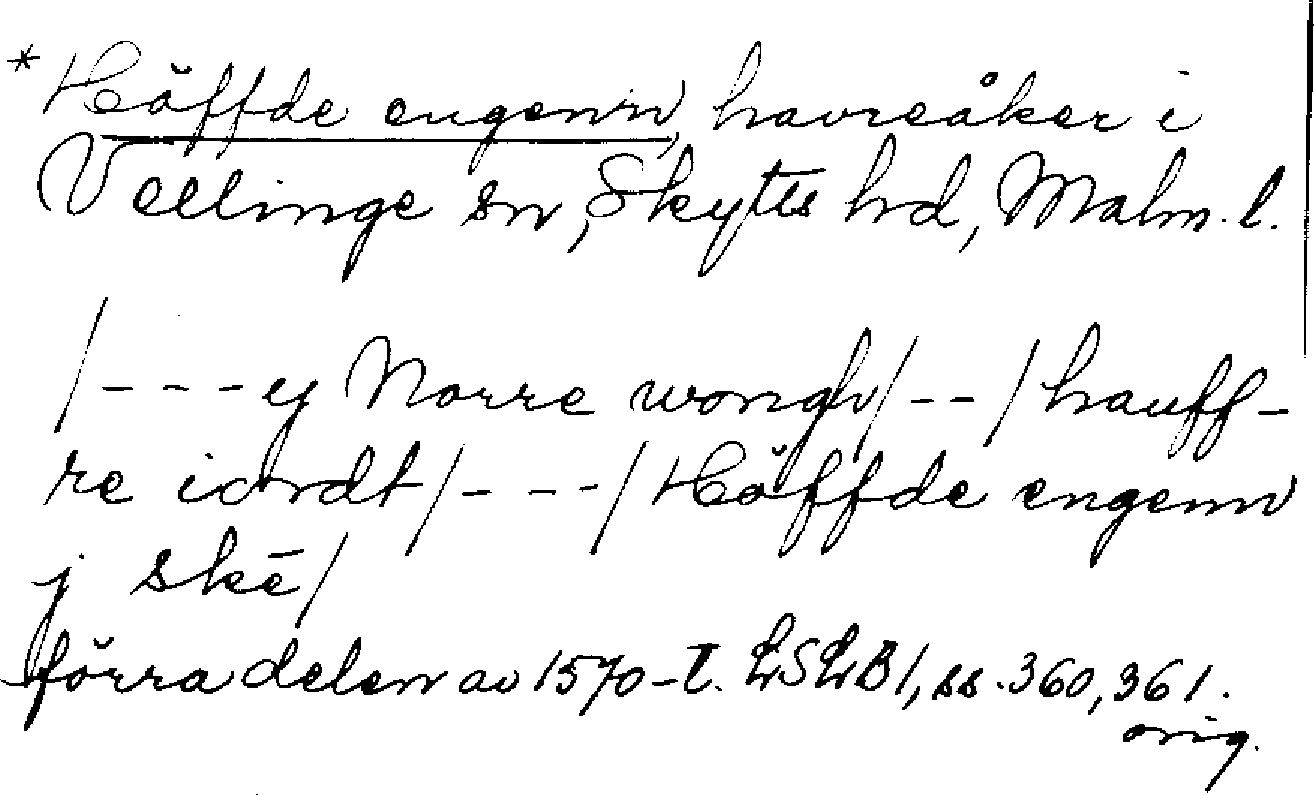 * Höffde engenn, havreåker i
Vellinge sn, Skytts hd, Malm. l.
/---ej Norre wongh/--/hauff-
re iordt/---/Höffde engenn
j skē/
förra delen av 1570-t. LSLB1, ss. 360, 361.
orig.